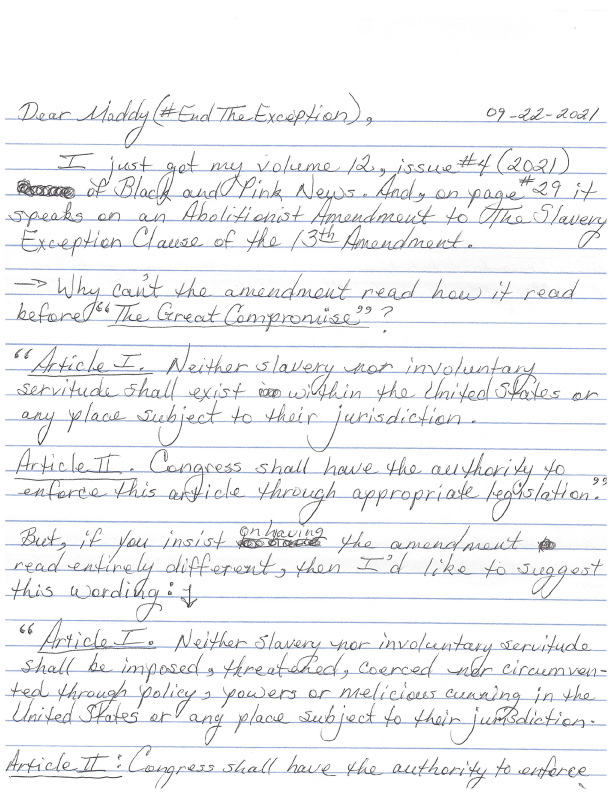 Dear Maddy (#End The Exception), 09-22-2021
I just got my volume 12, issue #4 (2021)
of Black and Pink News. And, on page #29 it
speaks on an Abolitionist Amendment to The Slavery
Exception Clause of the 13th Amendment.
→ Why can't the amendment read how it read
before "The Great Compromise"?
"Article I. Neither slavery nor involuntary
servitude shall exist within the United States or
any place subject to their jurisdiction.
Article II. Congress shall have the authority to
enforce this article through appropriate legislation."
But, if you insist on having the amendment
read entirely different, then I'd like to suggest
this wording: ↓
"Article I. Neither slavery nor involuntary servitude
shall be imposed, threatened, coerced nor circumven-
ted through policy, powers or melicious cunning in the
United States or any place subject to their jurisdiction.
Article II: Congress shall have the authority to enforce